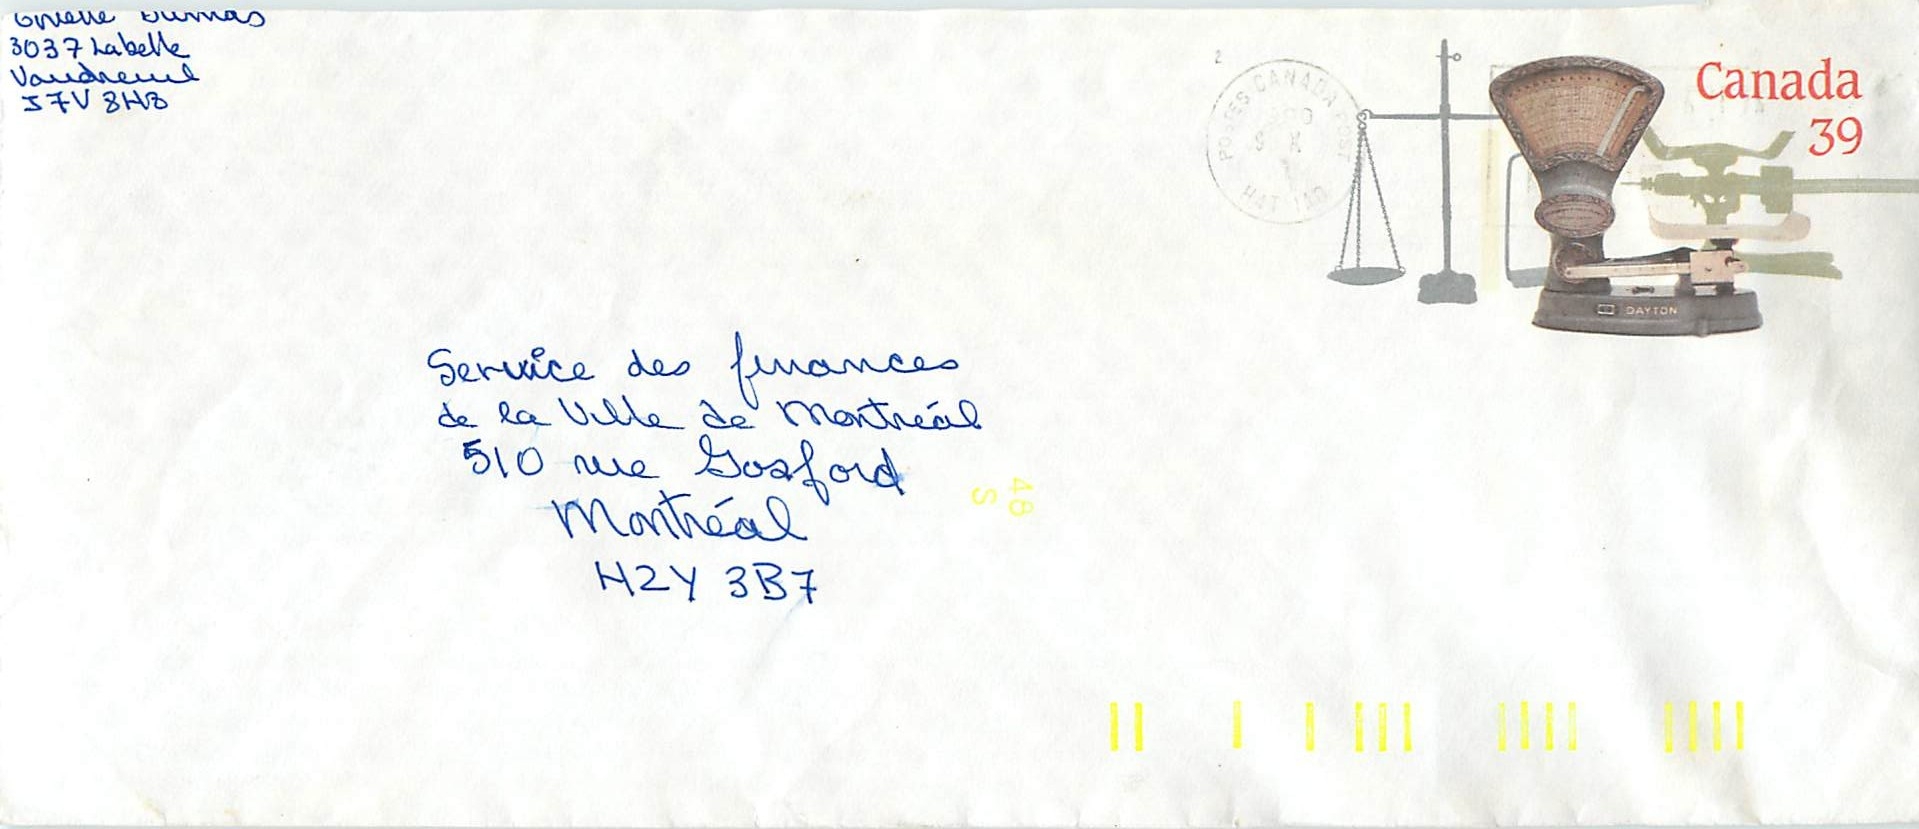 Dumas
3037 Labelle
Vaudreuil
J7V 8H3
2
POSTES CANADA POST
Canada
39
DAYTON
Service des finances
de la Ville de Montréal
510 rue Gosford
Montréal
H2Y 3B7
48
S